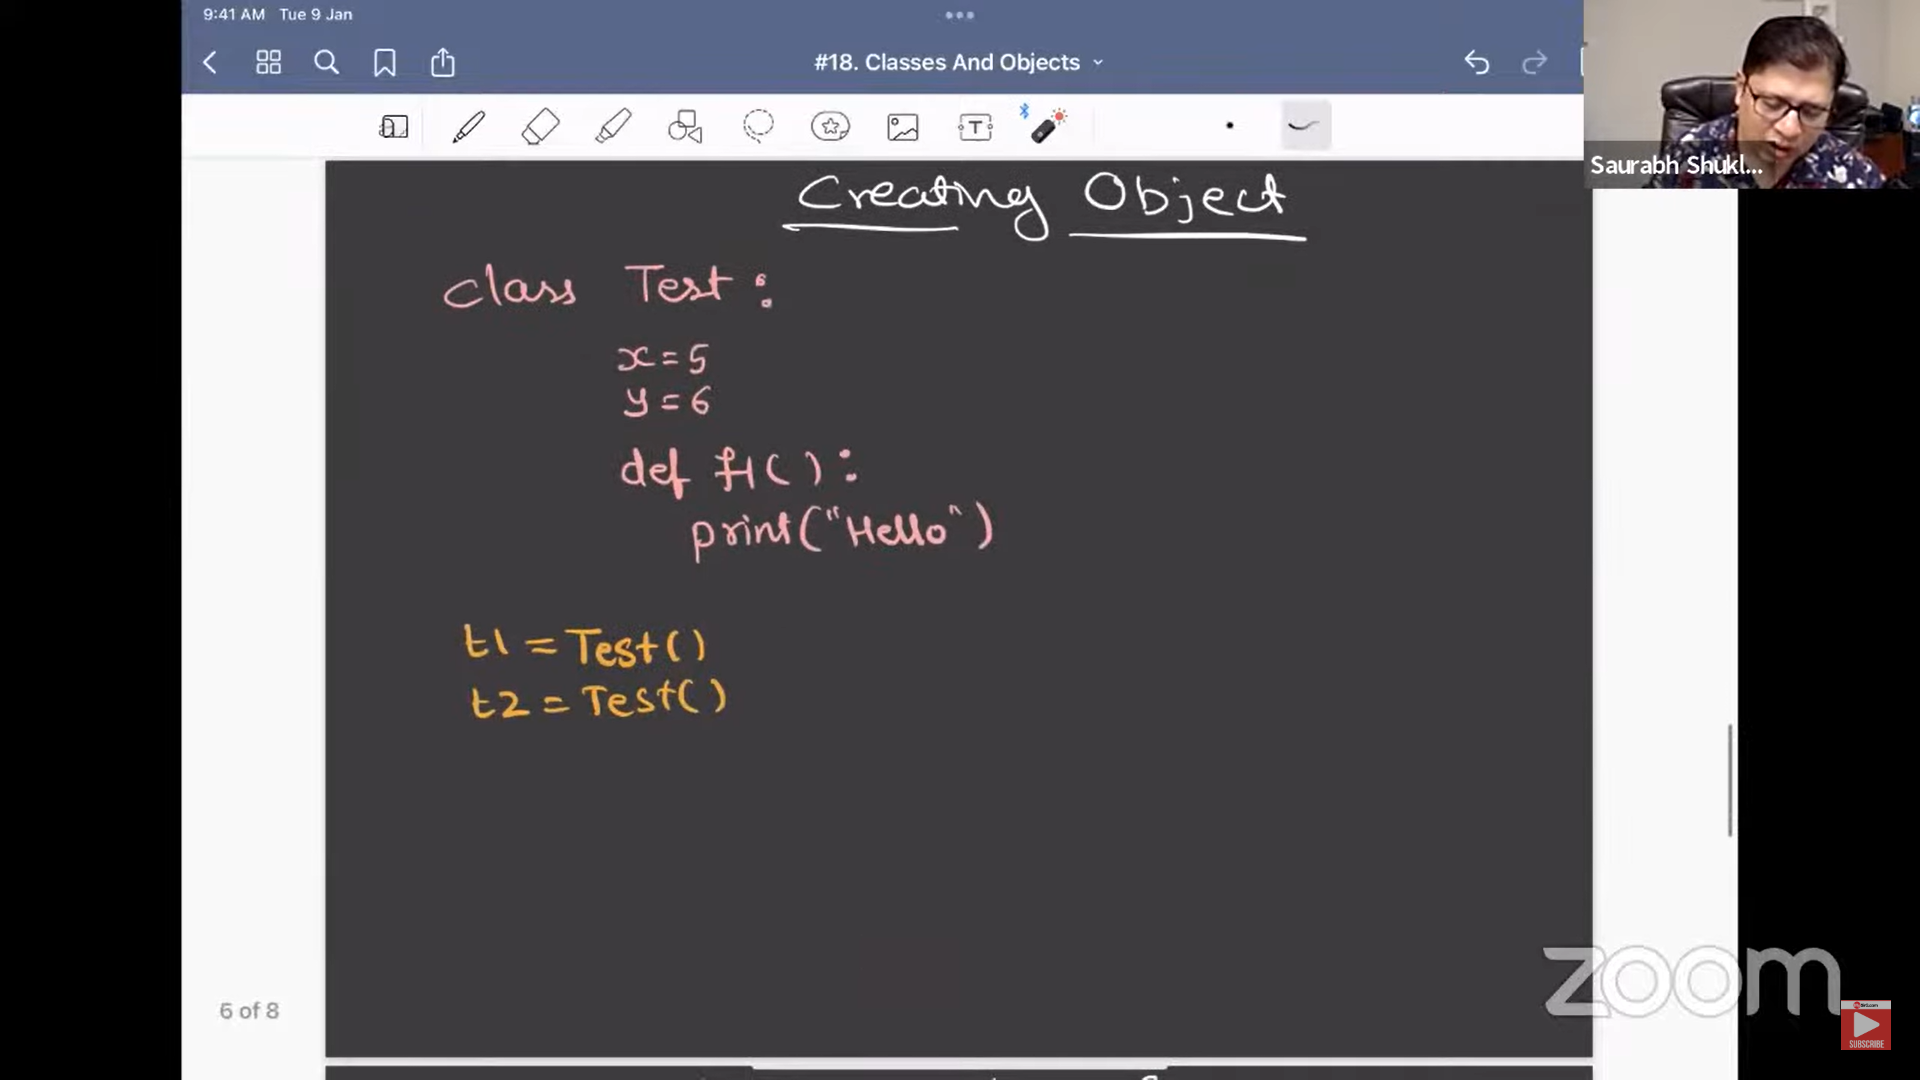 9:41 AM Tue 9 Jan
#18. Classes And Objects
T
Saurabh Shukl...
Creating Object
class Test:
x=5
y=6
def f1():
print("Hello")
t1 = Test()
t2 = Test()
6 of 8
zoom
SUBSCRIBE